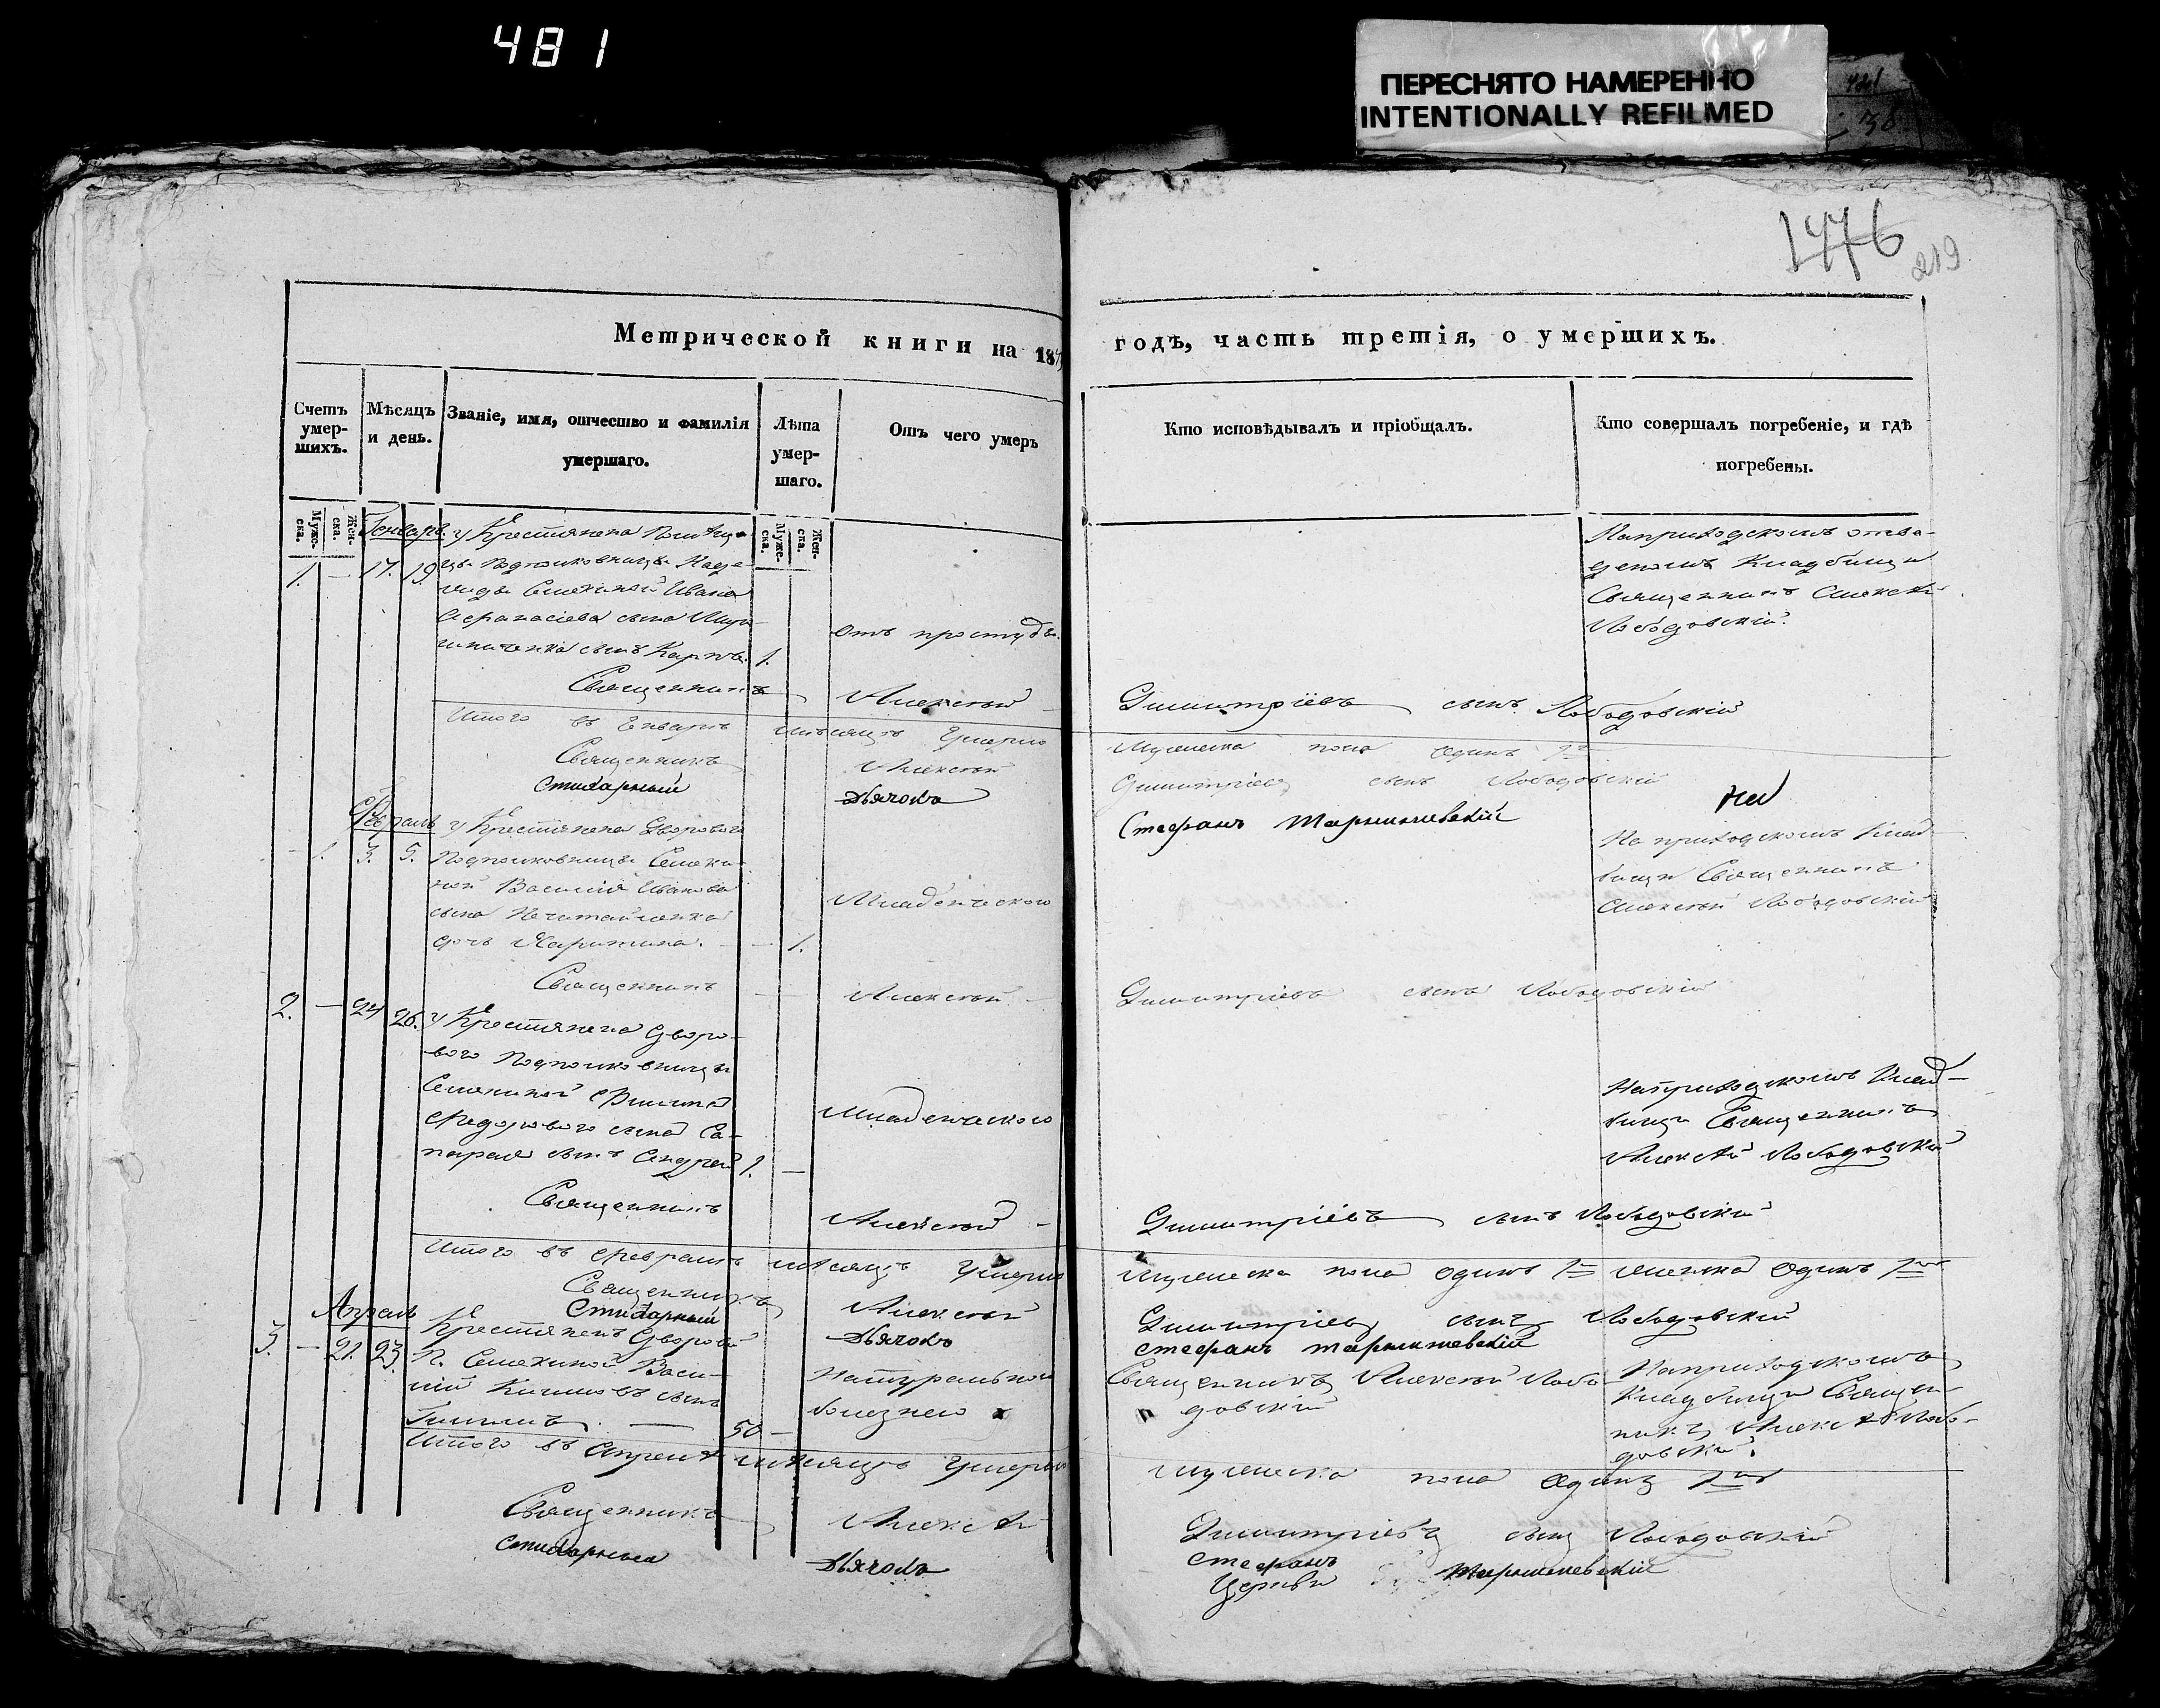 481
ПЕРЕСНЯТО НАМЕРЕННО
INTENTIONALLY REFILMED
1476
219
Метрической книги на 184
годѣ, часть третія, о умершихъ.
Счетъ умер-
шихъ.
Мѣсяцъ
и день.
Званіе, имя, отчество и фамилія
умершаго.
Лѣта
умер-
шаго.
Отъ чего умеръ
Кто исповѣдывалъ и пріобщалъ.
Кто совершалъ погребеніе, и гдѣ
погребены.
Муже-
ска.
Жен-
ска.
Муже-
ска.
Жен-
ска.
Генварь
1. – 17. 19.
у Крестянена
Подполковницы
Семекиной Ивана
Афанасіева сына
сынъ Карпъ. 1.
отъ простуды.
Священникъ
Лободовскій.
Священникъ Алексѣй Димитріевъ сынъ Лободовскій
Итого въ Генварѣ мѣсяцѣ умерло мужеска пола одинъ 1
Священникъ Алексѣй Димитріевъ сынъ Лободовскій
Стихарный Дьячокъ Стефанъ
Февраль
– 1. 3. 5.
у Крестянена Дворового
Подполковницы Семеки-
ной Василія Иванова
сына
дочь Харитина. – 1.
Младенческого
На приходскомъ клад-
бищи Священникъ
Алексѣй Лободовскій
Священникъ Алексѣй Димитріевъ сынъ Лободовскій
2. – 24 26.
у Крестянена Дворо-
вого Подполковницы
Семекиной Филипа
Федорового сына
сынъ Андрей 1. –
Младенческого
На приходскомъ клад-
бищи Священникъ
Алексѣй Лободовскій
Священникъ Алексѣй Димитріевъ сынъ Лободовскій
Итого въ Февралѣ мѣсяцѣ умерло мужеска пола одинъ 1 женска одинъ 1
Священникъ Алексѣй Димитріевъ сынъ Лободовскій
Стихарный Дьячокъ Стефанъ
Апрель
3. – 21. 23.
Крестяненъ Дворовой
П. Семекиной Васи-
лій сынъ
50 –
Натуральною
болезнею
Священникъ Алексѣй Лобо-
довскій
На приходскомъ
кладбищи Священ-
никъ Алексѣй Лобо-
довскій.
Итого въ Апрелѣ мѣсяцѣ умерло мужеска пола одинъ 1
Священникъ Алексѣй Димитріевъ сынъ Лободовскій
Дьячокъ Стефанъ